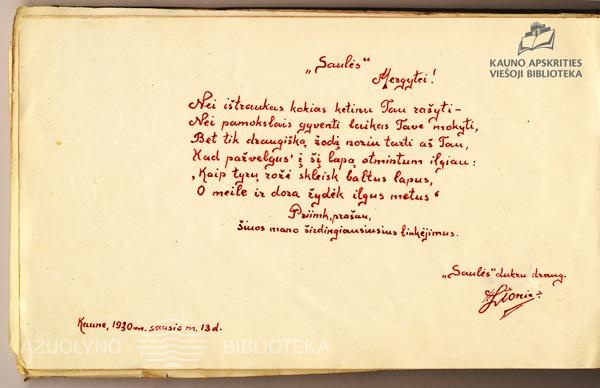 KAUNO APSKRITIES
VIEŠOJI BIBLIOTEKA
„Saulės“
Mergytei!
Nei ištraukas kokias ketinu Tau rašyti –
Nei pamokslais gyventi laikas Tave mokyti,
Bet tik draugišką žodį noriu tarti aš Tau,
Kad pažvelgus' į šį lapą atmintum ilgiau:
„Kaip tyrų rožė skleisk baltus lapus,
O meile ir dora žydėk ilgus metus“
Priimk, prašau,
šiuos mano širdingiausiusius linkėjimus.
„Saulės“ dukrų draug.
Kaune, 1930 m. sausio m. 13 d.
AŽUOLYNO BIBLIOTEKA